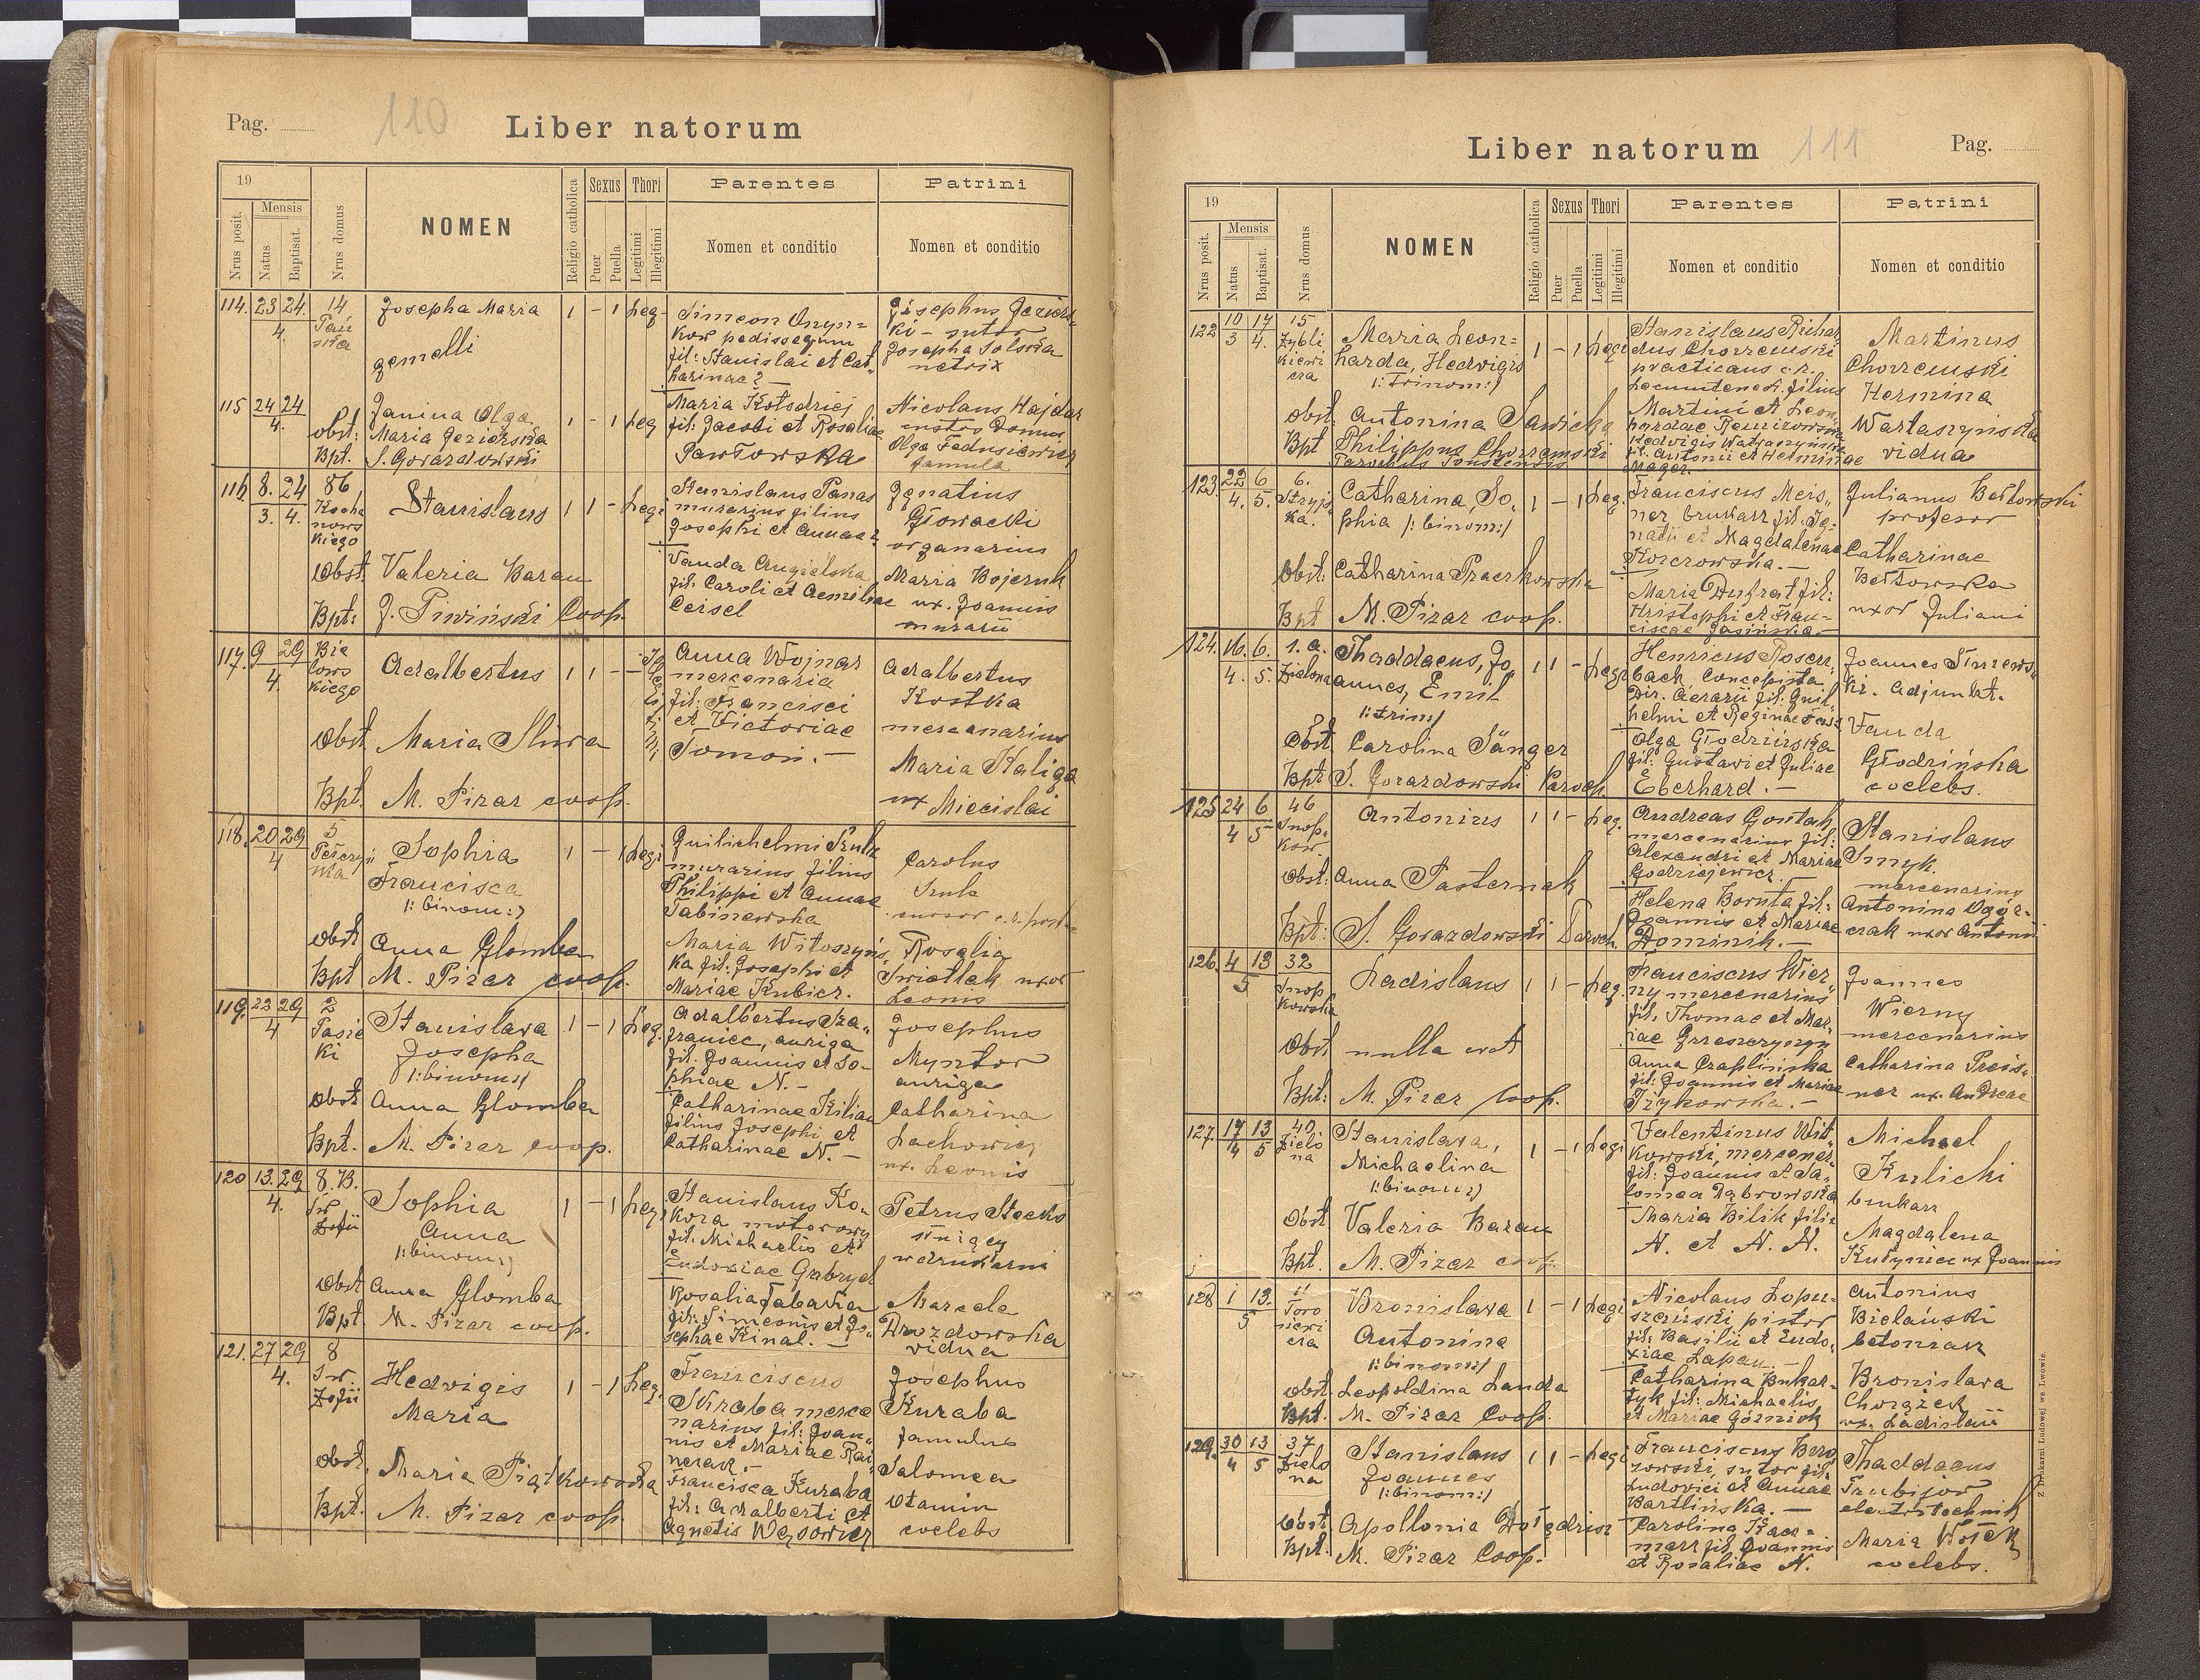 Pag.
110
Liber natorum
19
Mensis
Nrus posit.
Natus
Baptisat.
Nrus domus
NOMEN
Religio catholica
Sexus
Puer
Puella
Thori
Legitimi
Illegitimi
Parentes
Nomen et conditio
Patrini
Nomen et conditio
114. 23 24. 4. 14
Josepha Maria 1 - 1 Leg.
gemelli
Simeon
pedissequus
fil: Stanislai et Cat
harinae? —
Josephus
ki - sutor
Josepha Solska
115 24 24 4.
Janina Olga 1 - 1 Leg
Obst: Maria Jeziorska
Bpt. S. Gorazdowski
Maria Kołodziej
fil: Jacobi et Rosaliae
Pawłowska
Nicolaus Hajdar
custos Domus
Olga Fedusiewicz
famula
116 8. 24 3. 4. 86
Kocha
nows
kiego
Stanislaus 1 1 - Legi
Obst. Valeria Baran
Bpt: J. Piwiński Coop.
Stanislaus Panas
murarius filius
Josephi et Annae?
Vanda Angielska
fil. Caroli et Aemiliae
Cersel
Ignatius
Głowacki
organarius
Maria Bojczuk
ux. Joannis
murarii
117. 9 29 4.
Bie
lows
kiego
Adalbertus 1 1 -
Obst Maria Sliwa
Bpt. M. Pizar coop.
Anna Wojnar
mercenaria
fil: Francisci
et Victoriae
Tomoń. —
Adalbertus
Kostka
mercenarius
Maria Kaliga
ux Miecislai
118. 20 29 4 5
Pełczyń
ska
Sophia 1 - 1 Legi
Francisca
/: binom:/
Obst Anna Glomba
Bpt M. Pizar coop.
murarius filius
Philippi et Annae
Tabiszewska
Maria Witoszyńs
ka fil. Josephi et
Mariae Kubicz.
Carolus
cursor c.r. post
Rosalia
Swietlek uxor
Leonis
119. 23 29 4 2
Pasie
ki
Stanislava 1 - 1 Leg.
Josepha
/:binom:/
Obst Anna Glomba
Bpt. M. Pizar coop.
Adalbertus Sza„
franiec, auriga
fil. Joannis et So-
phiae N. -
Catharinae Kilian
filius Josephi et
Catharinae N. -
Josephus
Myntor
auriga
Catharina
Lachowicz
ux. Leonis
120 13. 29 4. 8. B.
Św
Zofii
Sophia 1 - 1 Leg.
Anna
/:binom:/
Obst Anna Glomba
Bpt. M. Pizar coop.
Stanislaus Ko-
kora motorowy
fil. Michaelis et
Eudoxiae Gabryel
Rosalia Tabaska
fil: Simeonis et Jo„
sephae Kinal. —
Petrus Stecko
służący
w drukarni
Marcela
Drozdowska
vidua
121. 27 29 4. 8
Św.
Zofii
Hedvigis 1 - 1 Leg.
Maria
Obst. Maria Piątkowska
Bpt. M. Pizar coop
Franciscus
Skraba merce
narius fil: Joan„
nis et Mariae
Francisca Kuraba
fil: Adalberti et
Agnetis Wąsowicz
Josephus
Kuraba
famulus
Salomea
Otamin
coelebs
Liber natorum
111
Pag.
19
Mensis
Nrus posit.
Natus
Baptisat.
Nrus domus
NOMEN
Religio catholica
Sexus
Puer
Puella
Thori
Legitimi
Illegitimi
Parentes
Nomen et conditio
Patrini
Nomen et conditio
122 10 17 3 4. 15
Zybli
kiewi
cza
Maria Leon=
harda, Hedvigis 1 - 1 Legi
/:trinom:/
Obst. Antonina Sawicka
Bpt Philippus Chorzemski
Stanislaus Richar
dus Chorzemski
practicans c.r.
Locumtenent. filius
Martini et Leon„
hardae
Hedvigis Wartaszyńska
fil. Antonii et Herminae
Mager.
Martinus
Chorzemski
Hermina
Wartaszyńska
vidua
123. 22 6 4. 5. 6.
Stryjs
ka.
Catharina, So„
phia /: binom:/ 1 - 1 Leg.
Obst: Catharina Praczkowska
Bpt M. Pizar coop.
Franciscus Meis„
ner, brukarz fil. Ig-
natii et Magdalenae
Korczowska. —
Maria Duhrat fil:
Hristophi et Fran-
ciscae Jasińska —
Julianus Bełtowski
profesor
Catharinae
Bełtowska
uxor Juliani
124. 16. 6. 4. 5. 1. a.
Zielona
Thaddaeus, Jo„ 1 1 - Legi
annes, Emil
/:trin:/
Obst Carolina Sänger
Bpt S. Gorazdowski Paroch.
Henricus Rosen„
bach, Concepista
Dir. Aerarii fil. Guil„
helmi et Reginae
Olga Głodzińska
fil: Gustavi et Juliae
Eberhard. —
Joannes
ki. Adjunkt.
Vanda
Głodzińska
coelebs.
125 24 6 4 5 46
Snop
ków
Antonius 1 1 - Leg.
Obst: Anna Pasternak
Bpt: S. Gorazdowski Paroch.
Andreas Gontak
mercenarius fil:
Alexandri et Mariae
Godziejewicz.
Helena Boruta fil:
Joannis et Mariae
Dominik. —
Stanislaus
Smyk.
mercenarius
Antonina Ogór-
czak uxor Antonii
126. 4 13 5 32
Snop
kowska
Ladislaus 1 1 - Leg.
Obst. nulla erat
Bpt: M. Pizar Coop.
Franciscus Wier
ny mercenarius
fil. Thomae et Mar„
iae Grzeszczyszyn
Anna Czaplińska
fil: Joannis et Mariae
Tżykowska. —
Joannes
Wierny
mercenarius
Catharina Preis„
ner ux. Andreae
127. 17 13 4 5 40
Zielo
na
Stanislava, 1 - 1 Legi
Michaelina
/:binom:/
Obst Valeria Baran
Bpt. M. Pizar coop.
Valentinus Wit„
kowski, mercenar„
fil: Joannis et Sa„
lomea Dąbrowska
Maria Bilik filia
N. et N. N.
Michael
Kulicki
brukarz
Magdalena
Kutyniec ux Joannis
128 1 13. 5 11
Toro
siewi
cza
Bronislava 1 - 1 Legi
Antonina
/:binom:/
Obst Leopoldina Landa
Bpt. M. Pizar Coop.
Nicolaus Łopu-
szański, pistor
fil: Basilii et Eudo„
xiae Łapan. —
Catharina Bukar-
tyk fil: Michaelis
et Mariae Górniok
Antonius
Bielański
betoniarz
Bronislava
Chorążek
ux. Ladislaii
129. 30 13 4 5 37
Zielo
na
Stanislaus 1 1 - Legi
Joannes
/:binom:/
Obst Apollonia
Bpt. M. Pizar Coop.
Franciscus Brzo
zowski, sutor fil.
Ludovici et Annae
Bartlińska. —
Carolina Kacz-
marz fil. Joannis
et Rosaliae N.
Thaddaeus
Trubijow
electrotechnik
Maria Wołek
coelebs.
Z Drukarni Ludowej we Lwowie.